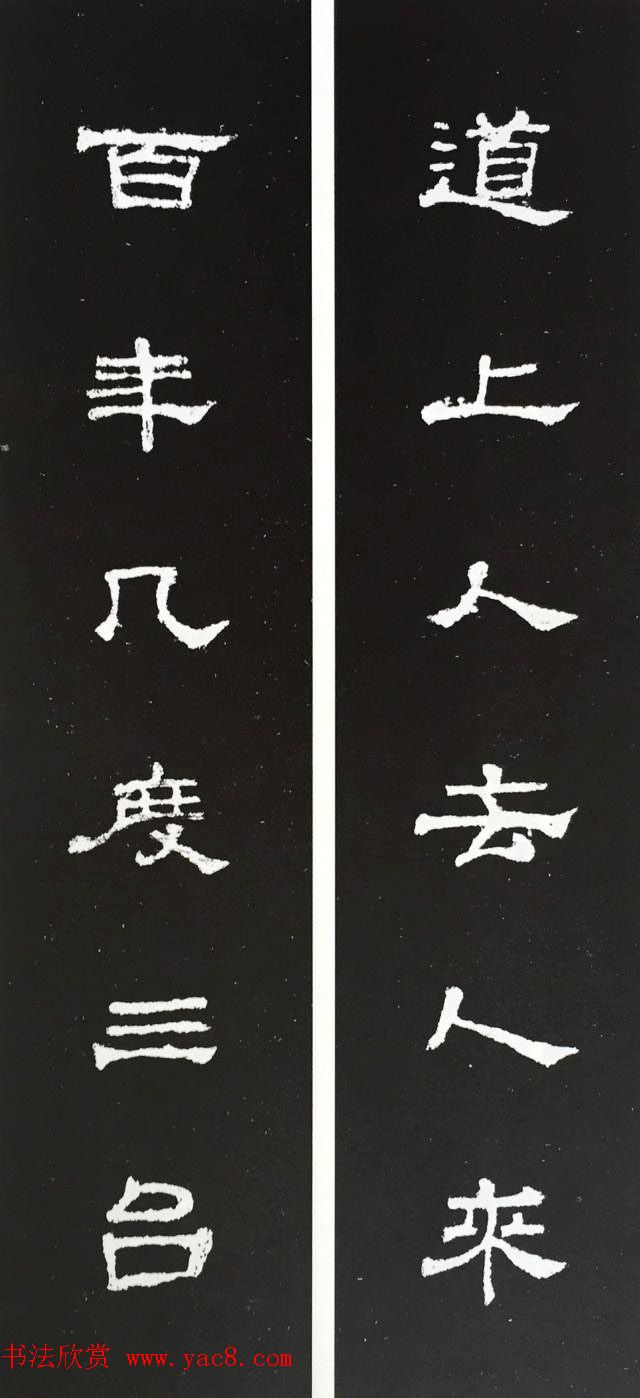 道上人去人來
百年几度三
书法欣赏 www.yac8.com